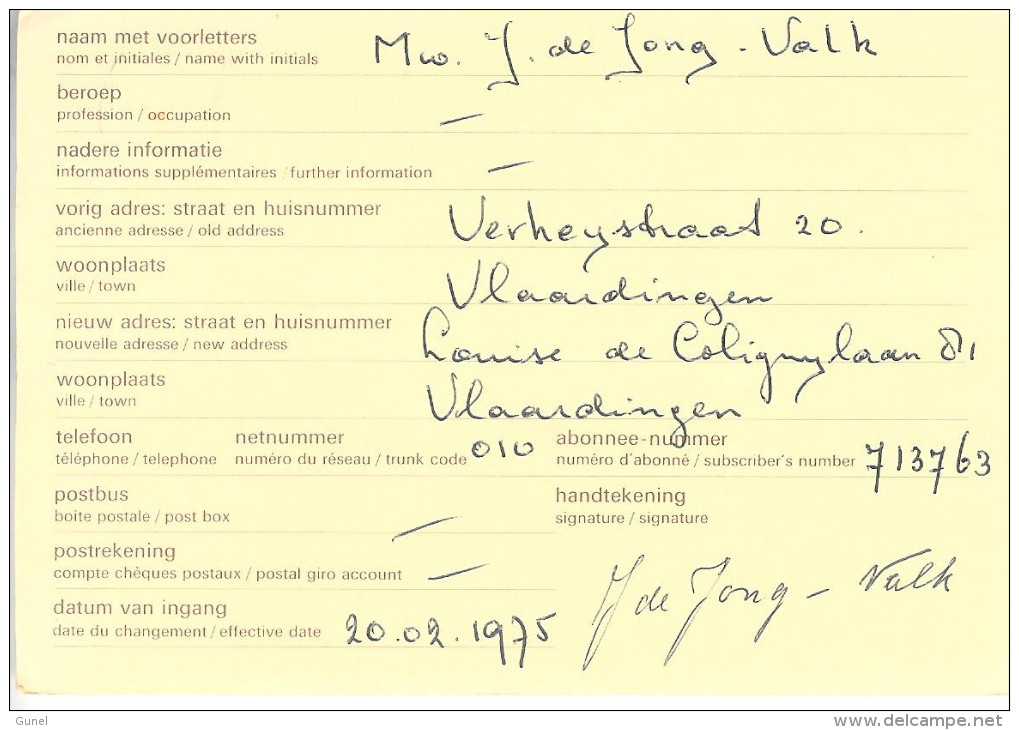 naam met voorletters
nom et initiales / name with initials Mw. J. de Jong - Valk
beroep
profession / occupation —
nadere informatie
informations supplémentaires / further information —
vorig adres: straat en huisnummer
ancienne adresse / old address Verheystraat 20.
woonplaats
ville / town Vlaardingen
nieuw adres: straat en huisnummer
nouvelle adresse / new address Louise de Colignylaan 81
woonplaats
ville / town Vlaardingen
telefoon netnummer abonnee-nummer
téléphone / telephone numéro du réseau / trunk code 010 numéro d'abonné / subscriber's number 713763
postbus handtekening
boite postale / post box — signature / signature
postrekening
compte chèques postaux / postal giro account —
J de Jong - Valk
datum van ingang
date du changement / effective date 20.02.1975
Gunel www.delcampe.net